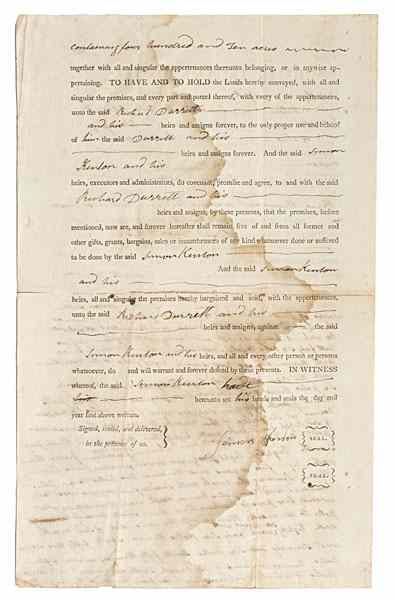 containing four hundred and Ten acres
together with all and singular the appertenances thereunto belonging, or in anywise ap-
pertaining. TO HAVE AND TO HOLD the Lands hereby conveyed, with all and
singular the premises, and every part and parcel thereof, with every of the appertenances,
unto the said Richard Durrett
and his heirs and assigns forever, to the only proper use and behoof
of him the said Durrett and his
heirs and assigns forever. And the said Simon
Kenton and his
heirs, executors and administrators, do covenant, promise and agree, to and with the said
Richard Durrett and his
heirs and assigns, by these presents, that the premises, before
mentioned, now are, and forever hereafter shall remain free of and from all former and
other gifts, grants, bargains, sales or incumbrances of any kind whatsoever done or suffered
to be done by the said Simon Kenton
And the said Simon Kenton
and his
heirs, all and singular the premises hereby bargained and sold, with the appertenances,
unto the said Richard Durrett and his
heirs and assigns, against the said
Simon Kenton and his heirs, and all and every other person or persons
whatsoever, do and will warrant and forever defend by these presents. IN WITNESS
whereof, the said Simon Kenton hath
hereunto set his hands and seals the day and
year first above written.
Signed, sealed, and delivered,
in the presence of us.
Simon Kenton
SEAL.
SEAL.